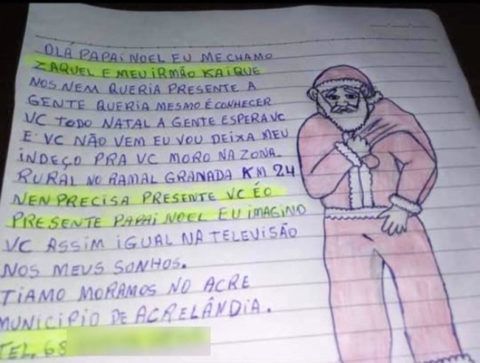 OLÁ PAPAI NOEL EU ME CHAMO
ZAQUEL E MEU IRMÃO KAIQUE
NOS NEM QUERIA PRESENTE A
GENTE QUERIA MESMO É CONHECER
VC TODO NATAL A GENTE ESPERA VC
E VC NÃO VEM EU VOU DEIXA MEU
INDEÇO PRA VC MORO NA ZONA
RURAL NO RAMAL GRANADA KM 24
NEN PRECISA PRESENTE VC É O
PRESENTE PAPAI NOEL EU IMAGINO
VC ASSIM IGUAL NA TELEVISÃO
NOS MEUS SONHOS.
TIAMO MORAMOS NO ACRE
MUNICIPIO DE ACRELÂNDIA.
TEL. 68